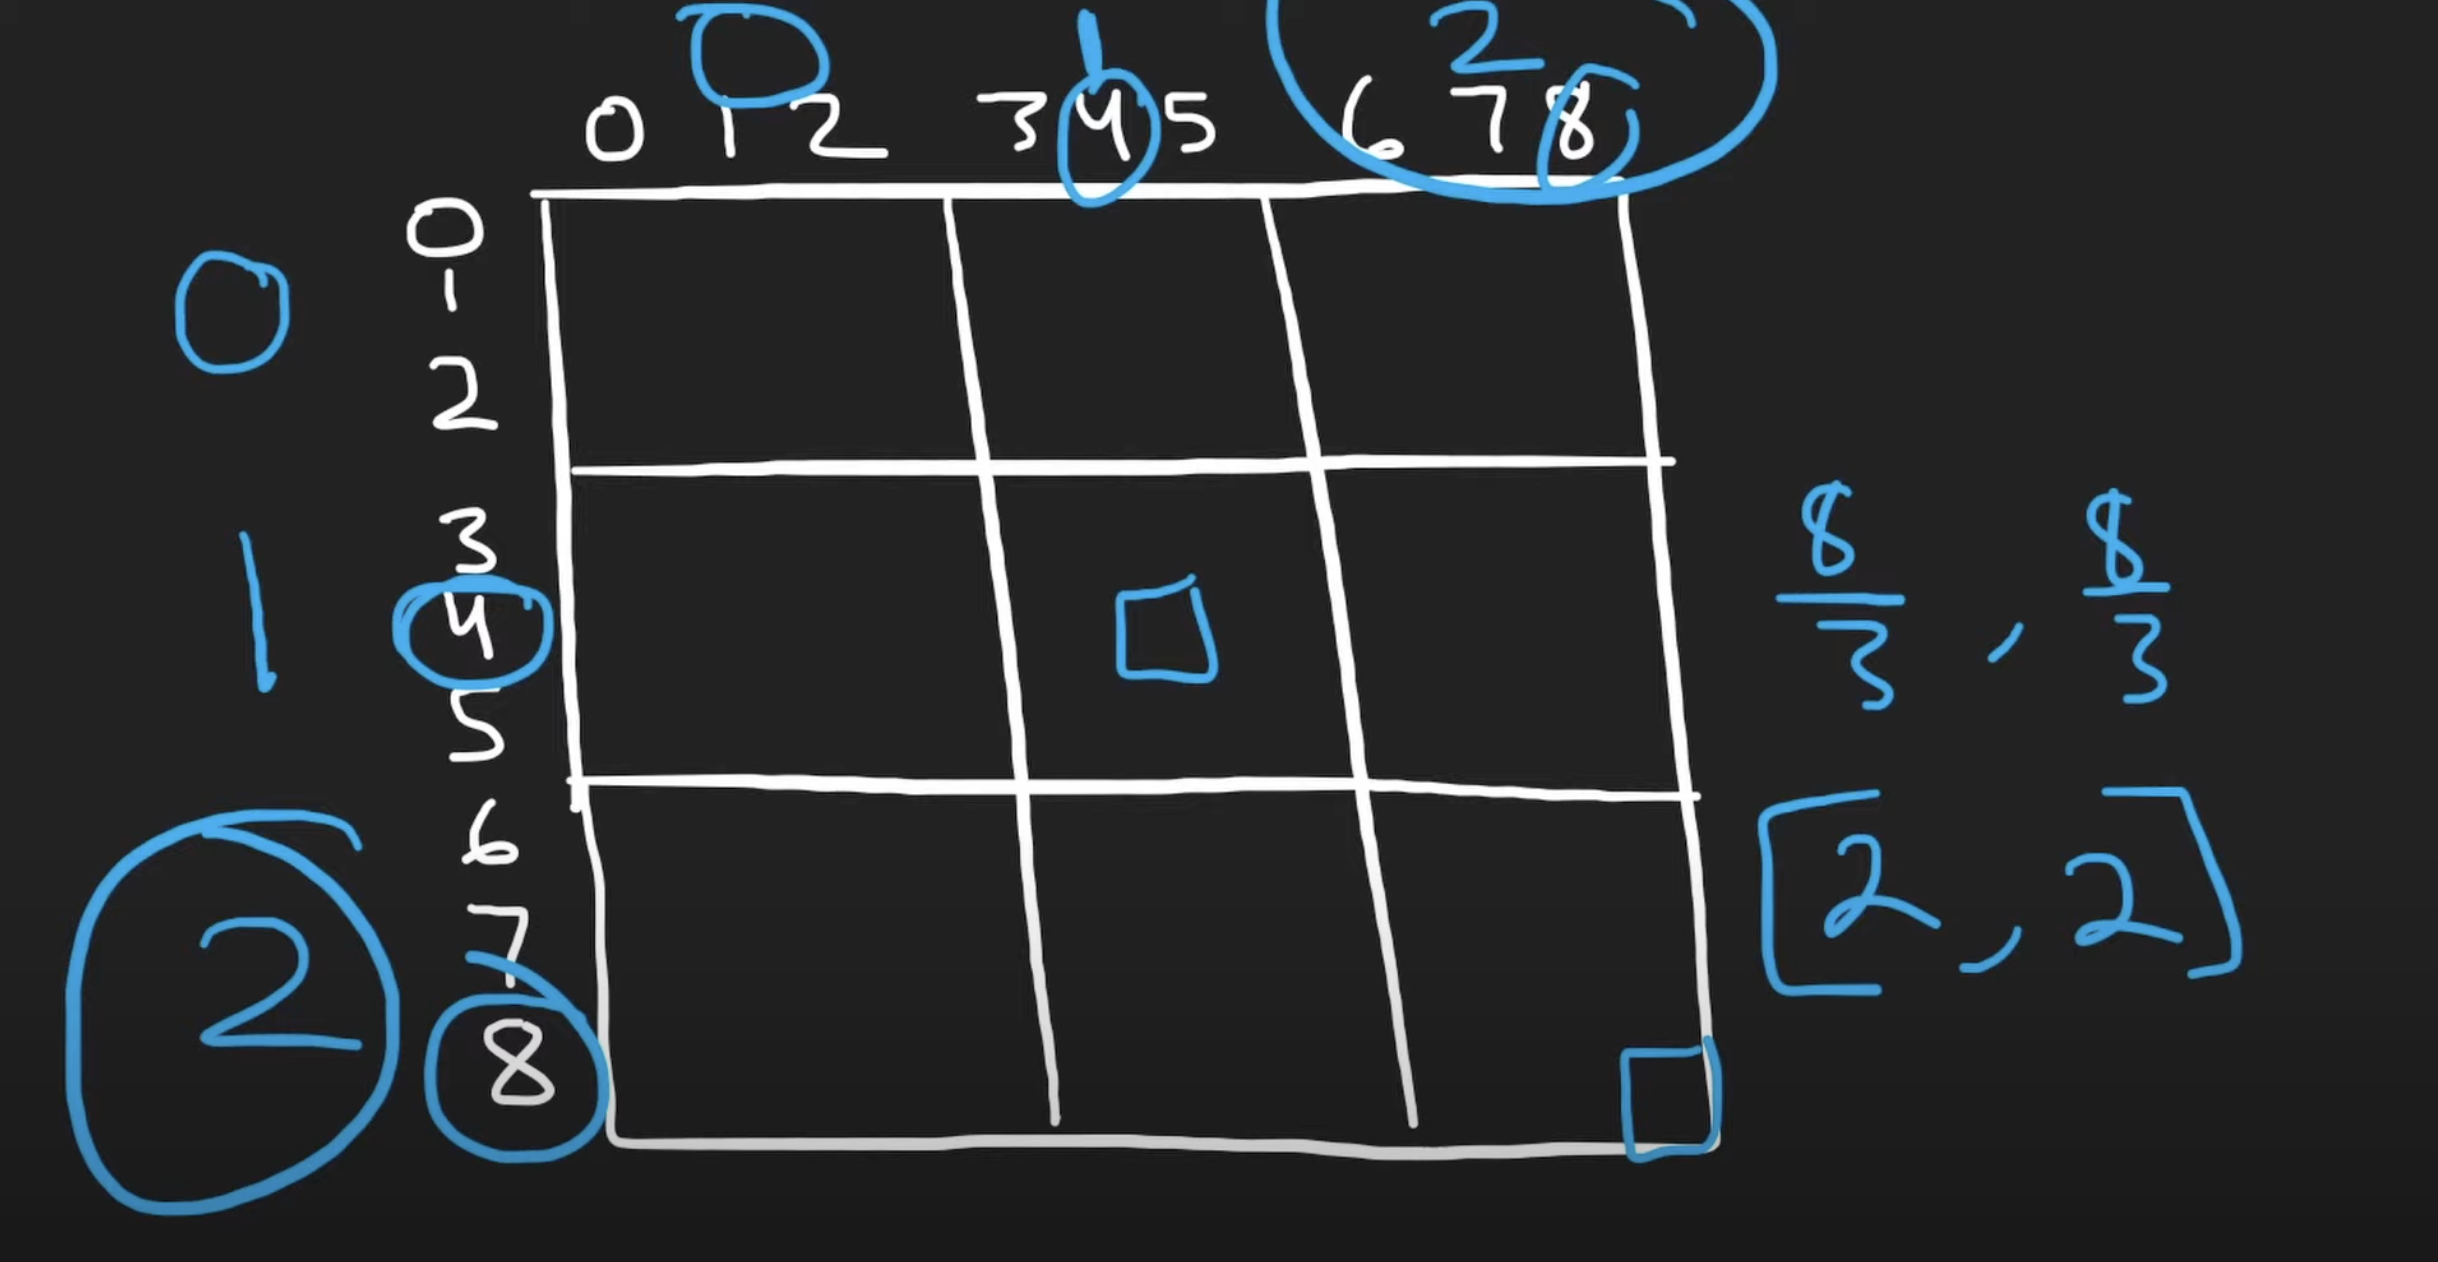 0 1 2
0 1 2 3 4 5 6 7 8
0
0
1
2
3
1 4
5
6
7
2
8
8/3 , 8/3
[2, 2]